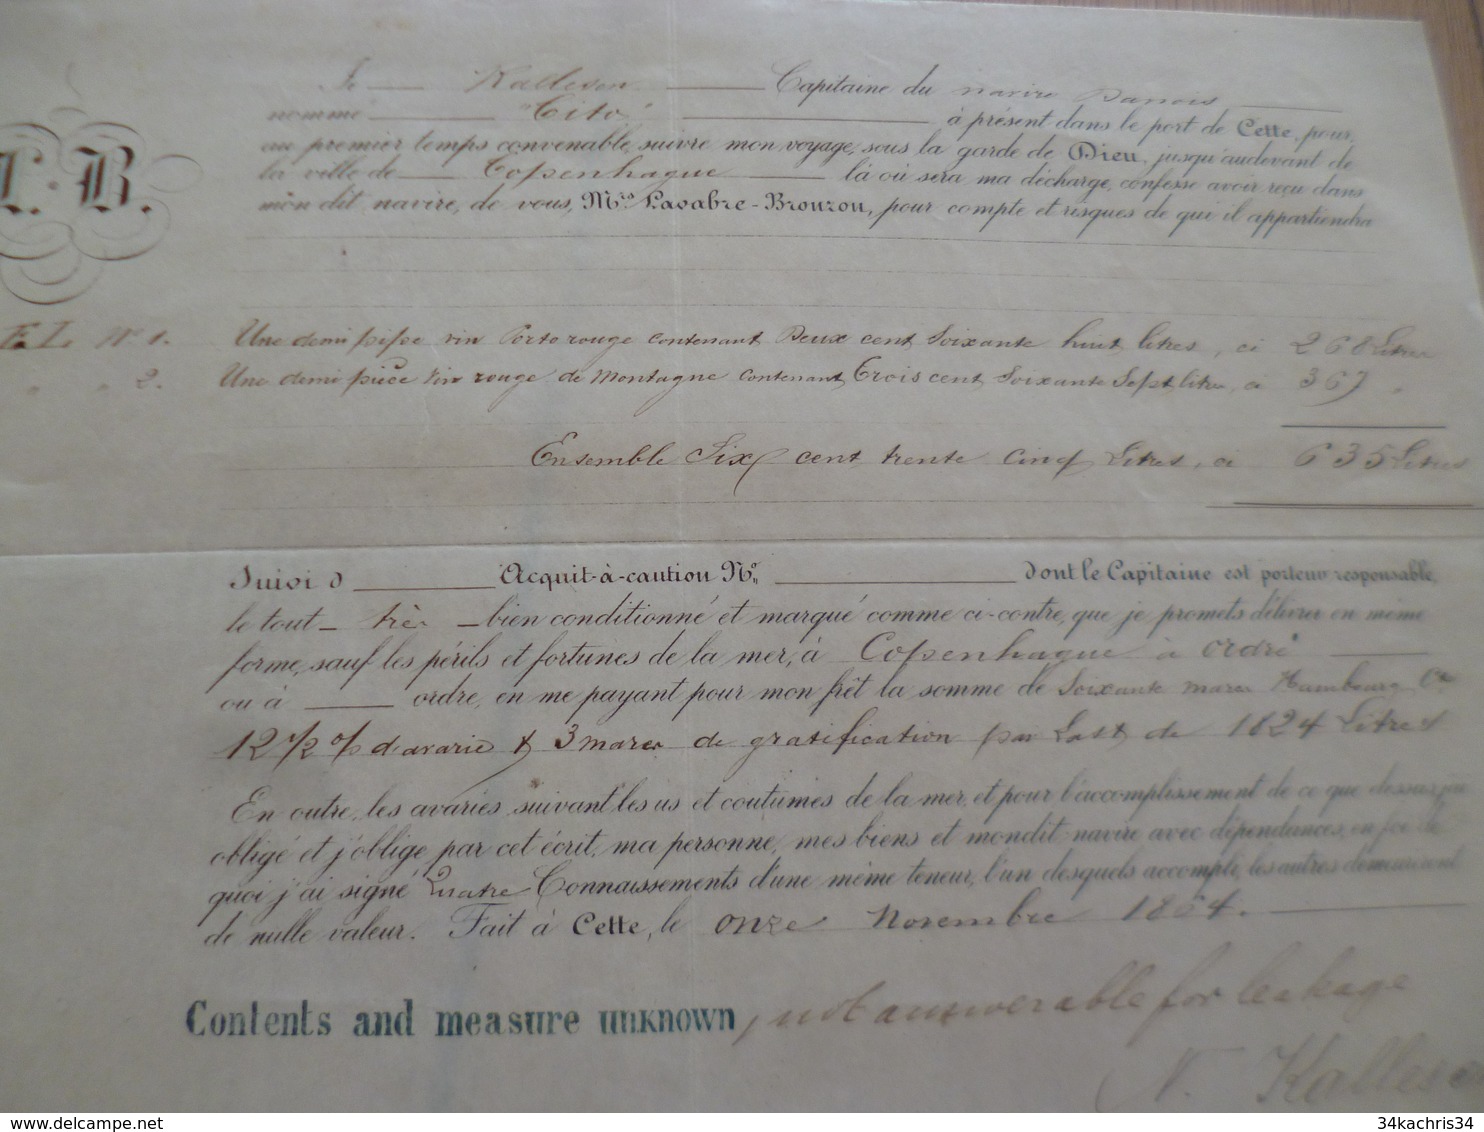 Je Kallesen Capitaine du navire Danois
nommé "Cito" à présent dans le port de Cette, pour,
au premier temps convenable, suivre mon voyage, sous la garde de Dieu, jusqu'au devant de
la ville de Copenhague là où sera ma décharge, confesse avoir reçu dans
mon dit navire, de vous, Mrs Lavabre-Brouzou, pour compte et risques de qui il appartiendra
L. B.
E.L. No 1. Une demi pipe vin Porto rouge contenant Deux cent Soixante huit litres, ci 268 Litres
" " 2. Une demi pièce Vin rouge de Montagne contenant Trois cent Soixante Sept litres, ci 367 "
Ensemble Six cent trente cinq Litres, ci 635 Litres
Suivi d Acquit-à-caution No dont le Capitaine est porteur responsable,
le tout très bien conditionné et marqué comme ci-contre, que je promets délivrer en même
forme, sauf les périls et fortunes de la mer, à Copenhague à ordre
ou à ordre, en me payant pour mon frêt la somme de Soixante marcs Hambourg Co
12 1/2 % d'avarie & 3 marcs de gratification par Last de 1824 Litres
En outre, les avaries suivant les us et coutumes de la mer, et pour l'accomplissement de ce que dessus, j'ai
obligé et j'oblige par cet écrit, ma personne, mes biens et mondit navire avec dépendances, en foi de
quoi j'ai signé Quatre Connaissements d'une même teneur, l'un desquels accompli, les autres demeureront
de nulle valeur. Fait à Cette, le onze Novembre 1864.
Contents and measure unknown, not answerable for leakage
N. Kallesen
34kachris34